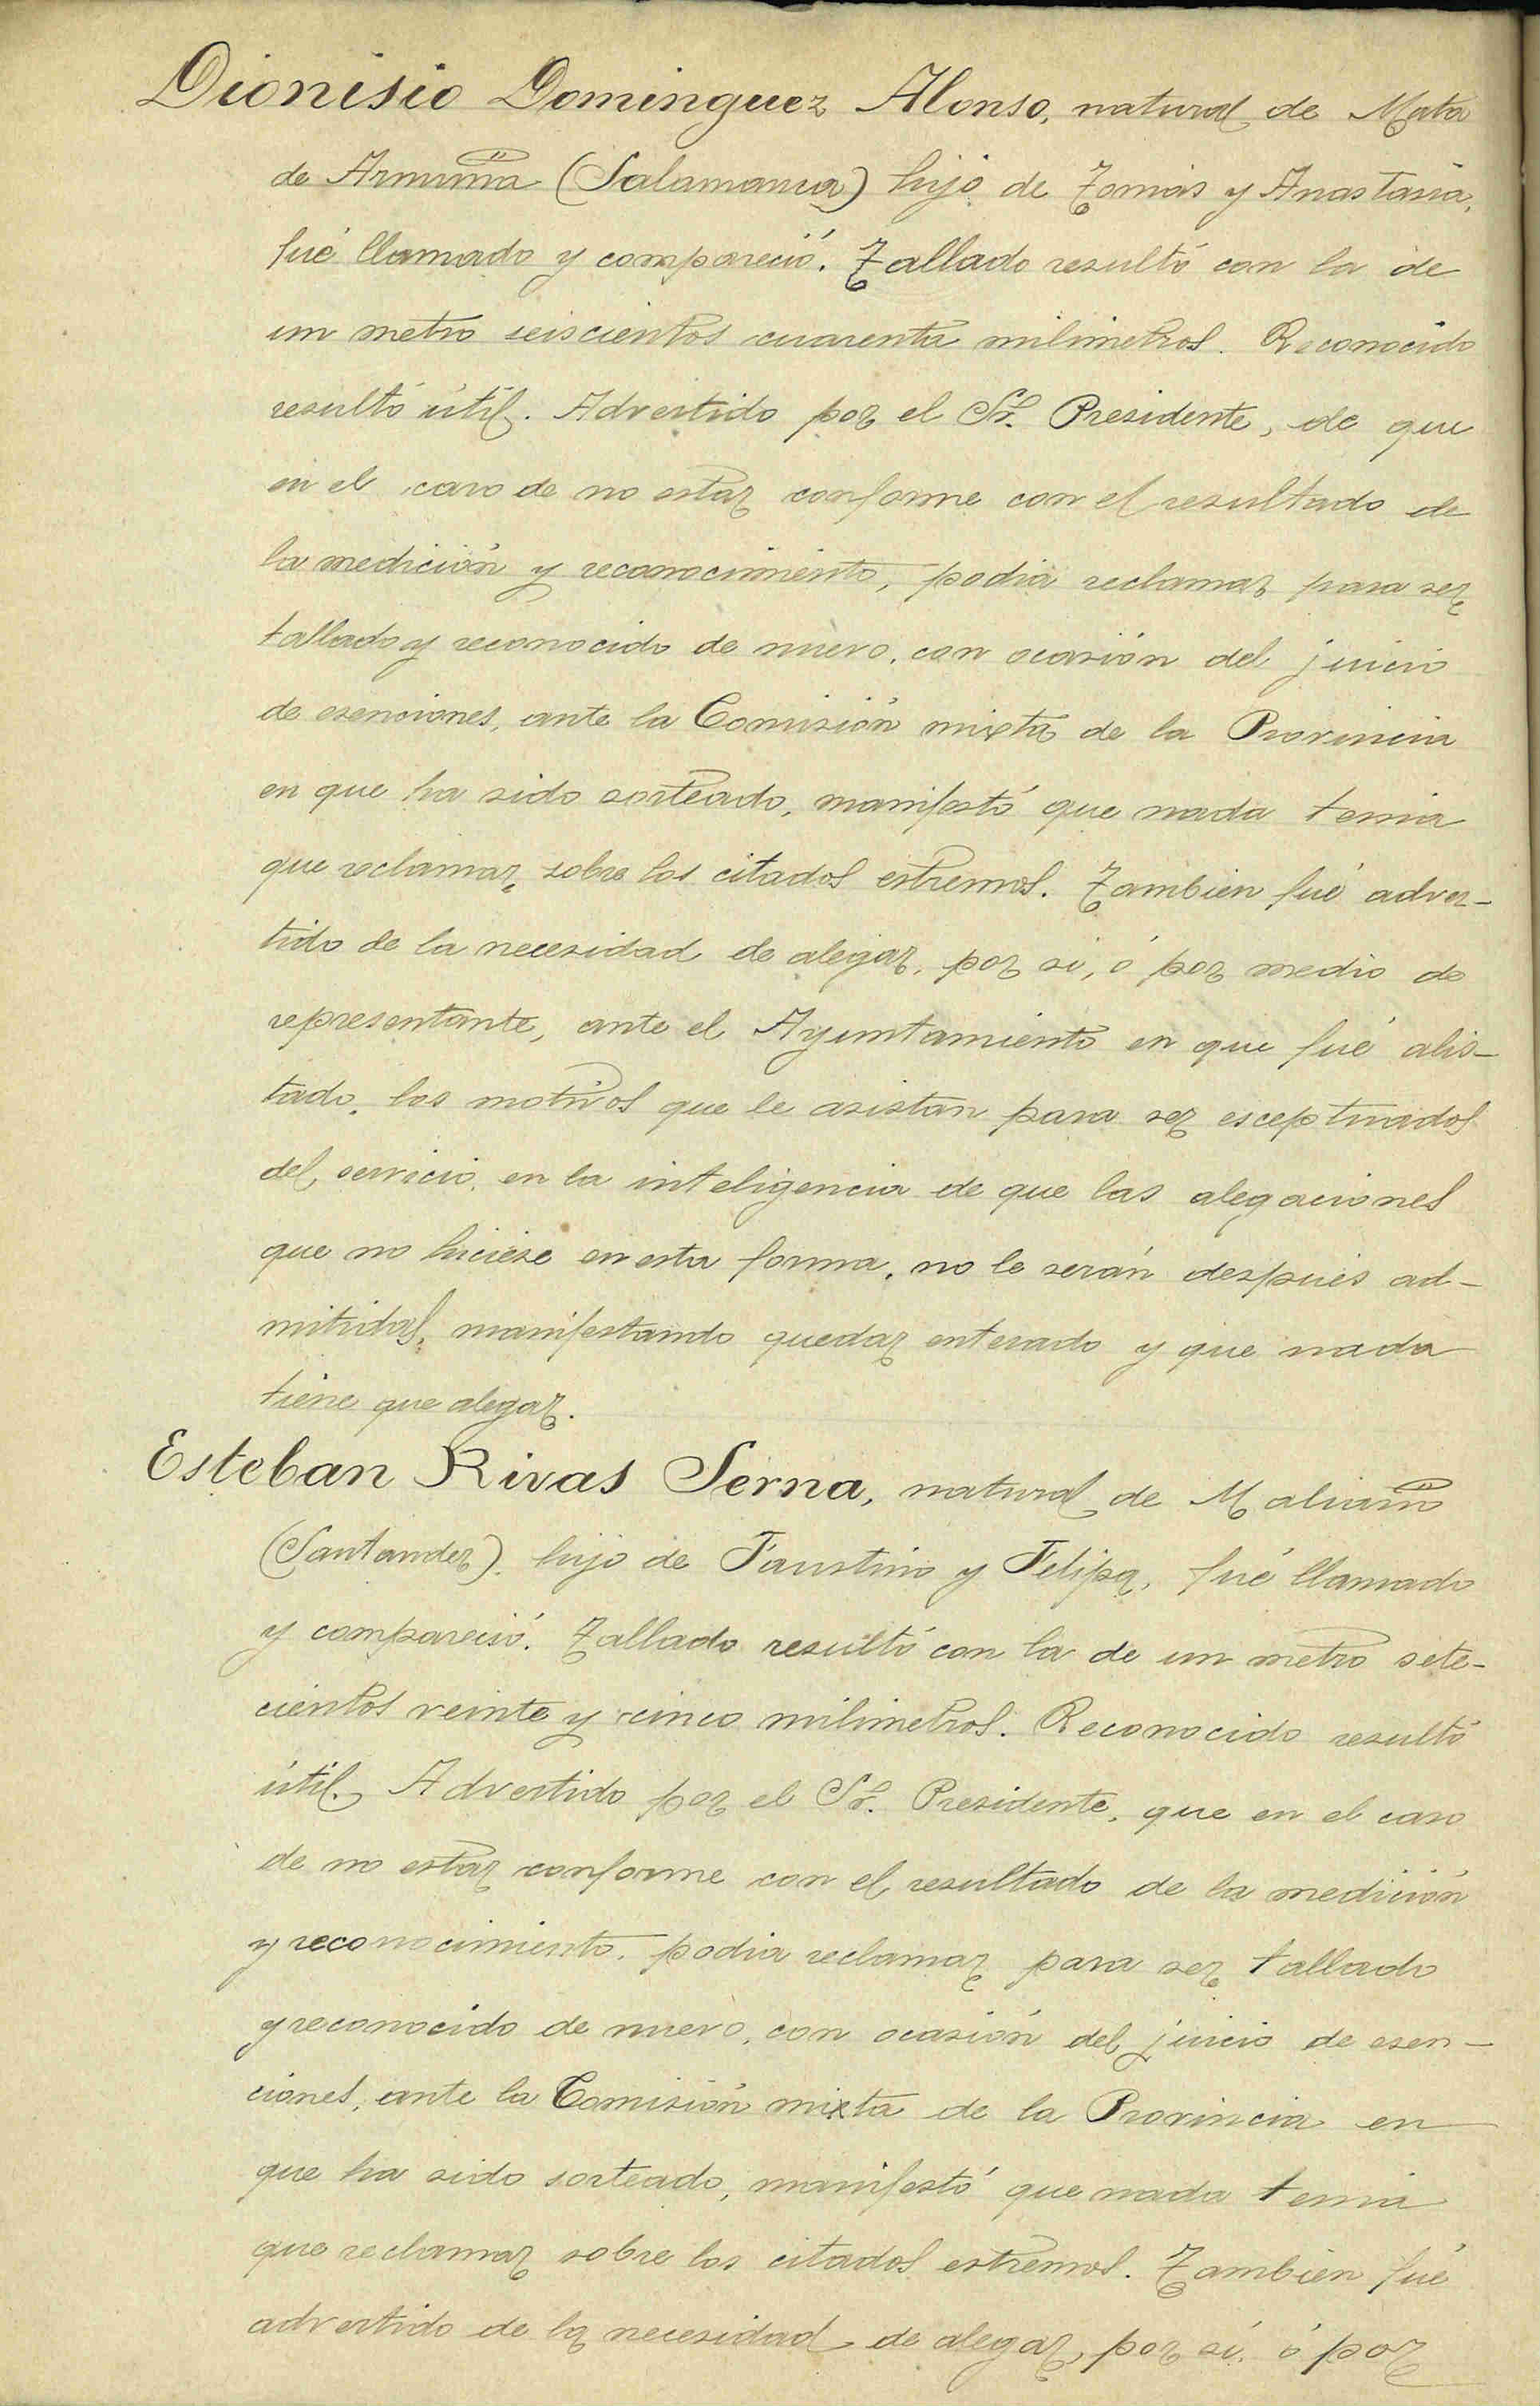 Dionisio Dominguez Alonso, natural de Mata
de Armuña (Salamanca) hijo de Tomás y Anastasia,
fué llamado y compareció. Tallado resultó con la de
un metro seiscientos cuarenta milimetros. Reconocido
resultó útil. Advertido por el Sr. Presidente, de que
en el caso de no estar conforme con el resultado de
la medición y reconocimiento, podia reclamar para ser
tallado y reconocido de nuevo, con ocasión del juicio
de esenciones, ante la Comisión mixta de la Provincia
en que ha sido sorteado, manifestó que nada tenia
que reclamar sobre los citados estremos. Tambien fué adver-
tido de la necesidad de alegar, por si, ó por medio de
representante, ante el Ayuntamiento en que fué alis-
tado, los motivos que le asistan para ser esceptuados
del servicio, en la inteligencia de que las alegaciones
que no hiciese en esta forma, no le serán despues ad-
mitidas, manifestando quedar enterado y que nada
tiene que alegar.
Esteban Rivas Serna, natural de Maliaño
(Santander), hijo de Faustino y Felipa, fué llamado
y compareció. Tallado resultó con la de un metro sete-
cientos veinte y cinco milimetros. Reconocido resultó
útil. Advertido por el Sr. Presidente, que en el caso
de no estar conforme con el resultado de la medición
y reconocimiento, podia reclamar para ser tallado
y reconocido de nuevo, con ocasión del juicio de esen-
ciones, ante la Comisión mixta de la Provincia en
que ha sido sorteado, manifestó que nada tenia
que reclamar sobre los citados estremos. Tambien fué
advertido de la necesidad de alegar, por sí, ó por